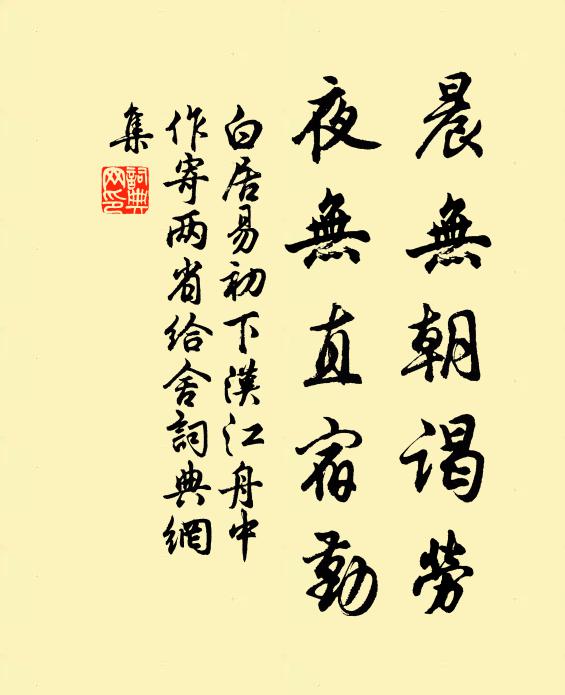 晨無朝谒勞
夜無直宿勤
白居易初下漢江舟中
作寄两省给舍詞典網
集
詞典
网印